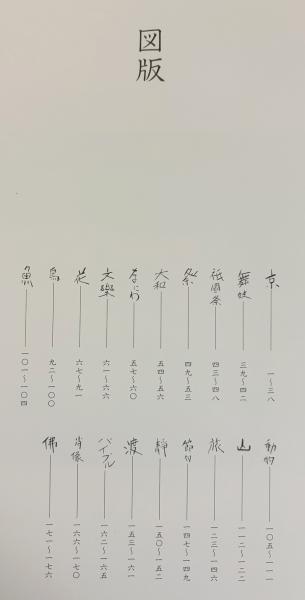 図版
京 一〜三八
舞妓 三九〜四二
祇園祭 四三〜四八
祭 四九〜五三
大和 五四〜五六
なにわ 五七〜六〇
文樂 六一〜六六
花 六七〜九一
鳥 九二〜一〇〇
魚 一〇一〜一〇四
動物 一〇五〜一一一
山 一一二〜一二二
旅 一二三〜一四六
節句 一四七〜一四九
靜 一五〇〜一五二
渡 一五三〜一六一
バイブル 一六二〜一六五
肖像 一六六〜一七〇
佛 一七一〜一七六